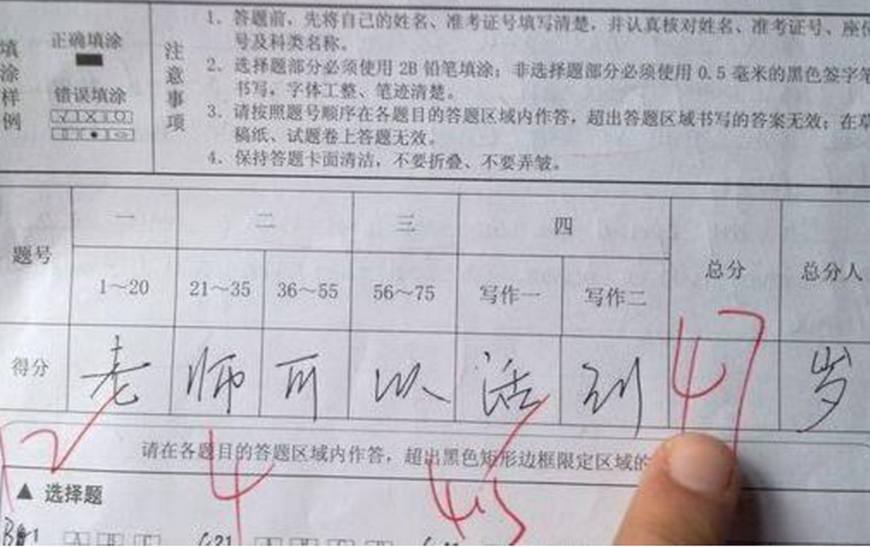 填涂样例
正确填涂
错误填涂
注意事项
1、答题前，先将自己的姓名、准考证号填写清楚，并认真核对姓名、准考证号、座位
号及科类名称。
2、选择题部分必须使用 2B 铅笔填涂；非选择题部分必须使用 0.5 毫米的黑色签字笔
书写，字体工整、笔迹清楚。
3、请按照题号顺序在各题目的答题区域内作答，超出答题区域书写的答案无效；在草
稿纸、试题卷上答题无效。
4、保持答题卡面清洁，不要折叠、不要弄皱。
题号 一 二 三 四 总分 总分人
1～20 21～35 36～55 56～75 写作一 写作二
得分 老 师 可 以 活 到 47 岁
请在各题目的答题区域内作答，超出黑色矩形边框限定区域的
12 4 4.5
▲ 选择题